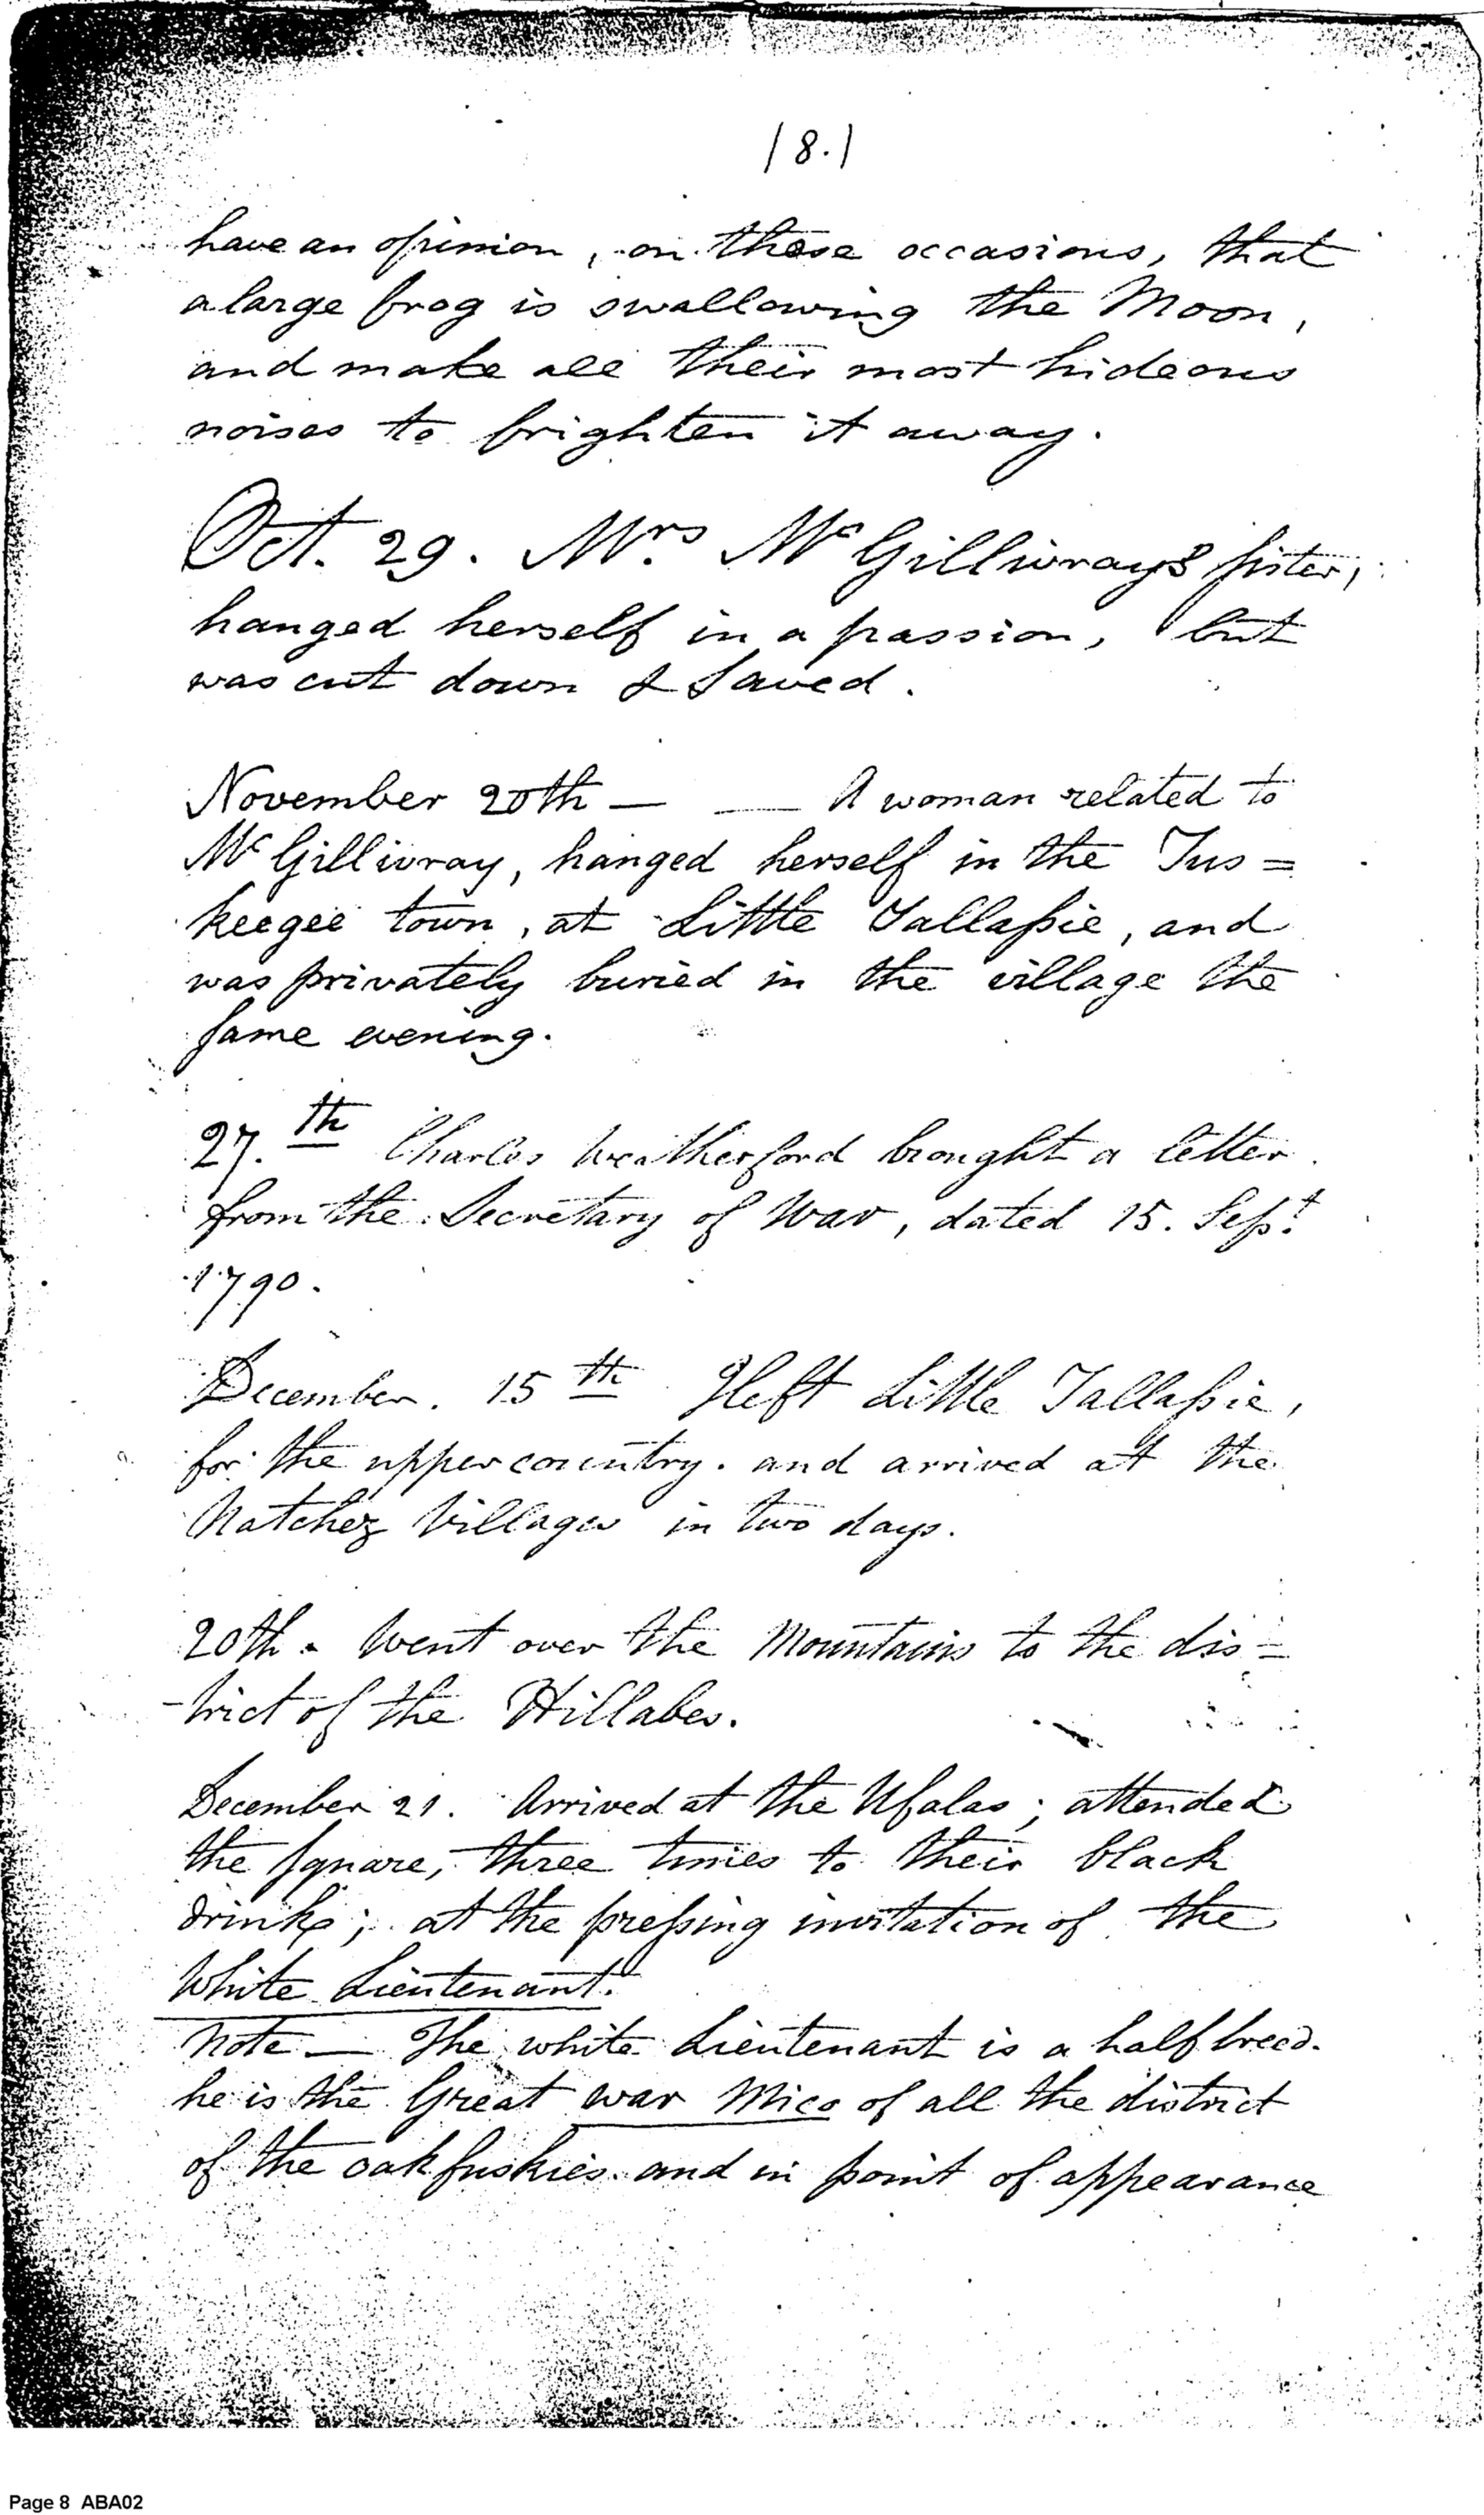 / 8. /
have an opinion, on these occasions, that
a large frog is swallowing the Moon,
and make all their most hideous
noises to frighten it away.
Oct. 29. Mrs McGillivrays ſister,
hanged herself in a passion, but
was cut down & Saved.
November 20th — — A woman related to
McGillivray, hanged herself in the Tus=
keegee town, at Little Tallaſsie, and
was privately buried in the village the
ſame evening.
27.th Charles Weatherford brought a letter
from the Secretary of War, dated 15. Sept.
1790.
December. 15th I left Little Tallaſsie,
for the upper country. and arrived at the
Natchez Villages in two days.
20th. Went over the Mountains to the dis=
-trict of the Hillabes.
December 21. Arrived at the Ufalas; attended
the ſquare, three times to their black
drink; at the preſsing invitation of the
White Lieutenant.
Note — The white Lieutenant is a half breed.
he is the Great war Mico of all the district
of the oakfuskies. and in point of appearance
Page 8 ABA02